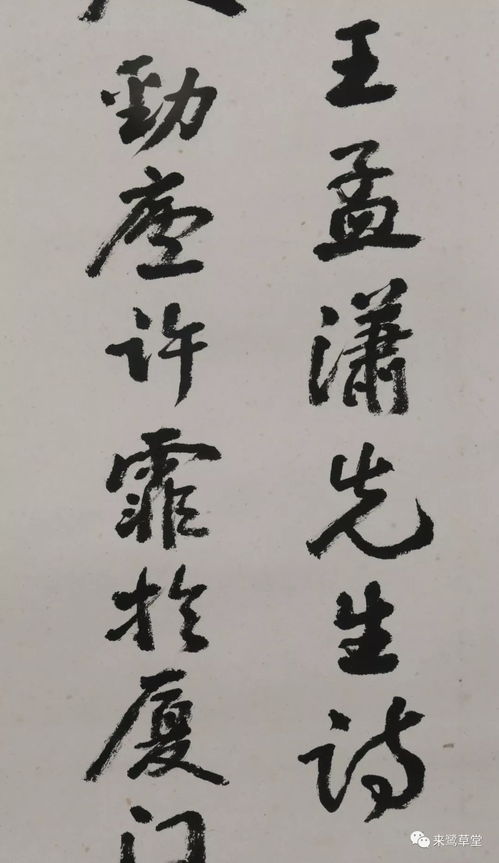 王孟潇先生诗
劲庐许霏於厦门
来鹭草堂